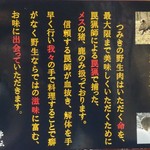 つみきの野生肉はいただく命を
最大限まで美味しくいただくために
罠猟師による罠猟で捕った、
メスの猪、鹿のみ扱っております。
信頼する罠師が血抜き、解体を手
早く行い我々の手で料理することで癖
がなく野生ならではの滋味に富む、
お味に出会っていただきます。